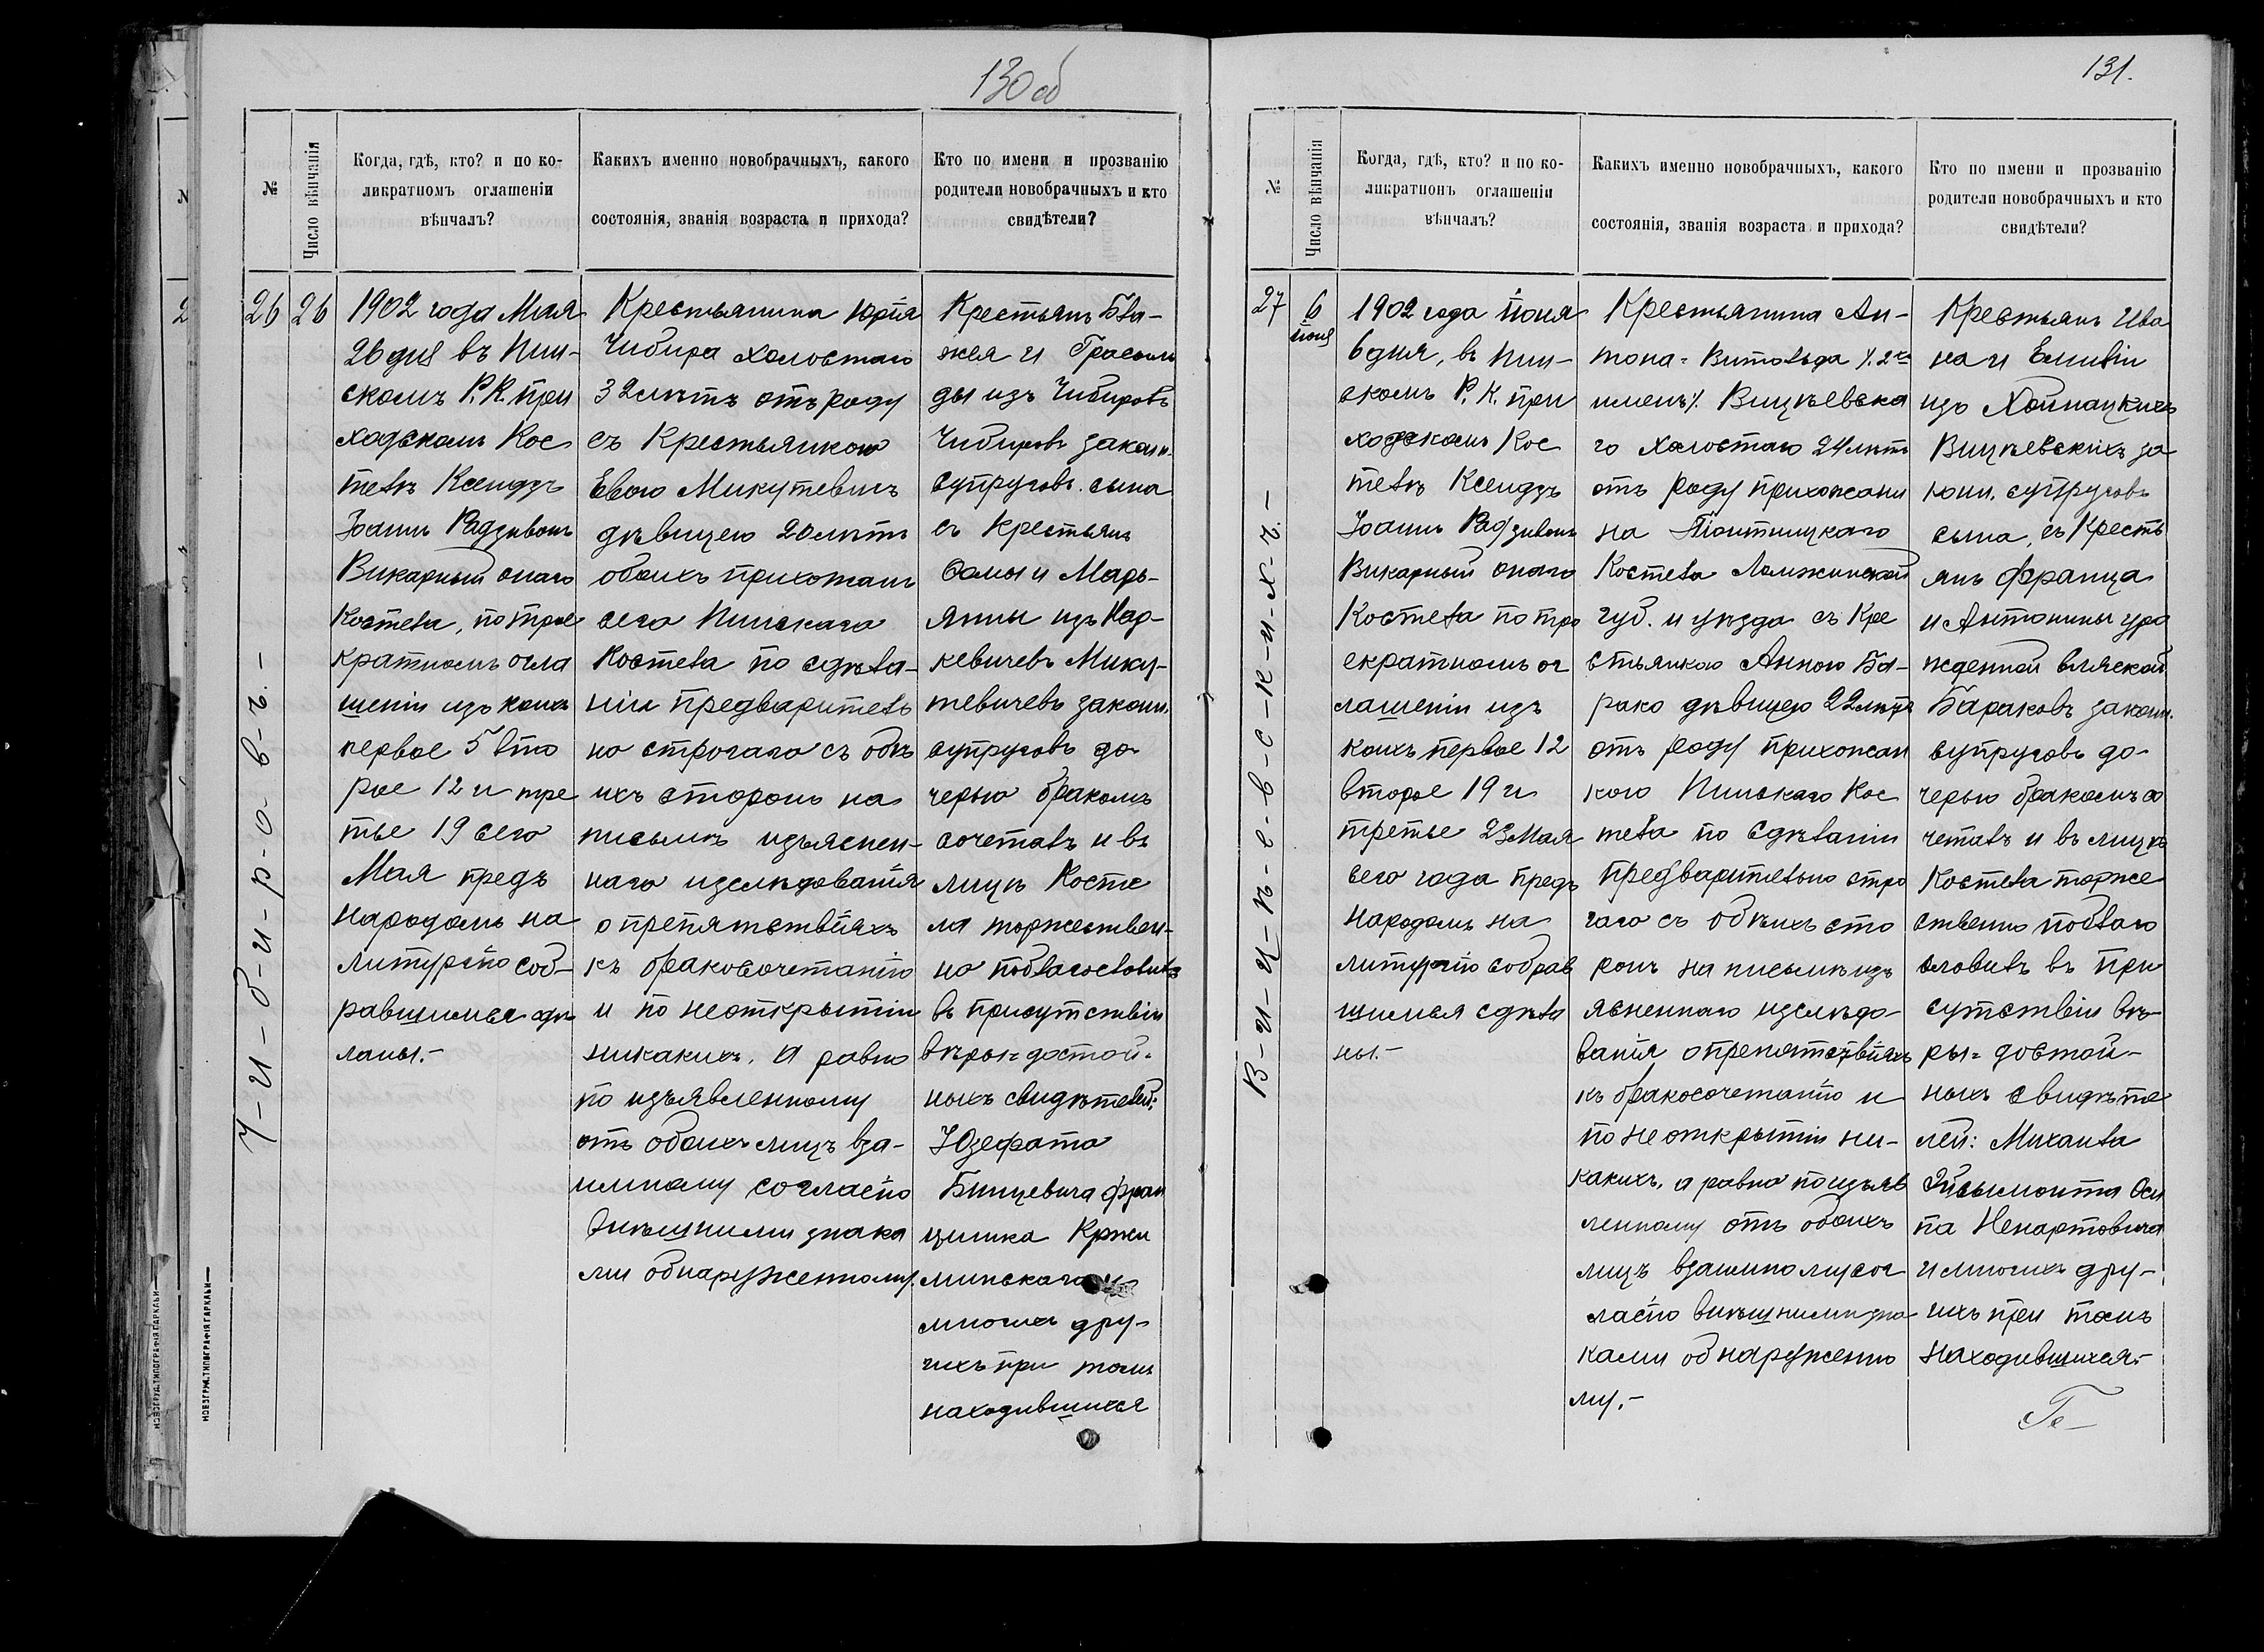 130 об
№
Число вѣнчанія
Когда, гдѣ, кто? и по ко-
ликратномъ оглашеніи
вѣнчалъ?
Какихъ именно новобрачныхъ, какого
состоянія, званія возраста и прихода?
Кто по имени и прозванію
родители новобрачныхъ и кто
свидѣтели?
26
26
Ч-и-б-и-р-о-в-ъ.-
1902 года Мая
26 дня въ Пин-
скомъ Р. К. при
ходскомъ Кос
телѣ Ксендзъ
Іоаннъ Радзивонъ
Викарный онаго
Костела, по трое
кратномъ огла
шеніи изъ коихъ
первое 5 вто
рое 12 и тре
тье 19 сего
Мая предъ
народомъ на
литургію соб-
равшимся сдѣ
ланы.-
Крестьянина Юрія
Чибира холостаго
32 лѣтъ отъ роду
съ Крестьянкою
Евою Микутевичъ
дѣвицею 20 лѣтъ
обоихъ прихожанъ
сего Пинскаго
Костела по сдѣла-
ніи предваритель
но строгаго съ обѣ
ихъ сторонъ на
письмѣ изъяснен-
наго изслѣдованія
о препятствіяхъ
къ бракосочетанію
и по неоткрытіи
никакихъ, а равно
по изъявленному
отъ обоихъ лицъ вза-
имному согласію
внѣшними знака
ми обнаруженному.
Крестьянъ Бла-
жея и
ды изъ Чибировъ
Чибировъ законн.
супруговъ сына
съ Крестьянъ
Ѳомы и Марь-
янны изъ
кевичевъ Мику-
тевичевъ законн.
супруговъ до-
черью бракомъ
сочеталъ и въ
лицѣ Косте
ла торжествен-
но поблагословилъ
въ присутствіи
вѣры-достой-
ныхъ свидѣтелей:
Юзефата
Бинцевича Фран
цишка Кржи
минскаго и
многихъ дру-
гихъ при томъ
находившихся
НОВОГРУД. ТИПОГРАФІЯ ГАРКАВИ
НОВОГРУД. ТИПОГРАФІЯ ГАРКАВИ
131.
№
Число вѣнчанія
Когда, гдѣ, кто? и по ко-
ликратномъ оглашеніи
вѣнчалъ?
Какихъ именно новобрачныхъ, какого
состоянія, званія возраста и прихода?
Кто по имени и прозванію
родители новобрачныхъ и кто
свидѣтели?
27
6
іюня
В-и-ц-ѣ-е-в-с-к-и-х-ъ.-
1902 года іюня
6 дня, въ Пин-
скомъ Р. К. при
ходскомъ Кос
телѣ Ксендзъ
Іоаннъ Радзивонъ
Викарный онаго
Костела по тро
екратномъ ог
лашеніи изъ
коихъ первое 12
второе 19 и
третье 23 Мая
сего года предъ
народомъ на
литургію собрав
шимся сдѣла
ны.-
Крестьянина Ан-
тона-Витольда /. 2хъ
именъ/. Вицѣевска
го холостаго 24 лѣтъ
отъ роду прихожани
на
Костела Ломжинской
губ. и уѣзда съ Кре
стьянкою Анною Ба-
рако дѣвицею 22 лѣтъ
отъ роду прихожан
кою Пинскаго Кос
тела по сдѣланіи
предварительно стро
гаго съ обѣихъ сто
ронъ на письмѣ изъ
ясненнаго изслѣдо-
ванія о препятствіяхъ
къ бракосочетанію и
по неоткрытіи ни-
какихъ, а равно по изъяв
ленному отъ обоихъ
лицъ взаимному сог
ласію внѣшними зна
ками обнаруженно
му.-
Крестьянъ Ива
на и Емиліи
изъ Хойнацкихъ
Вицѣевскихъ за
конн. супруговъ
сына, съ Кресть
янъ Франца
и Антонины уро
жденной
Бараковъ законн.
супруговъ до-
черью бракомъ со
четалъ и въ лицѣ
Костела торже
ственно поблаго
словилъ въ при
сутствіи вѣ-
ры-достой-
ныхъ свидѣте
лей: Михаила
Эйсымонта Оси
па Ненартовича
и многихъ дру-
гихъ при томъ
находившихся.-